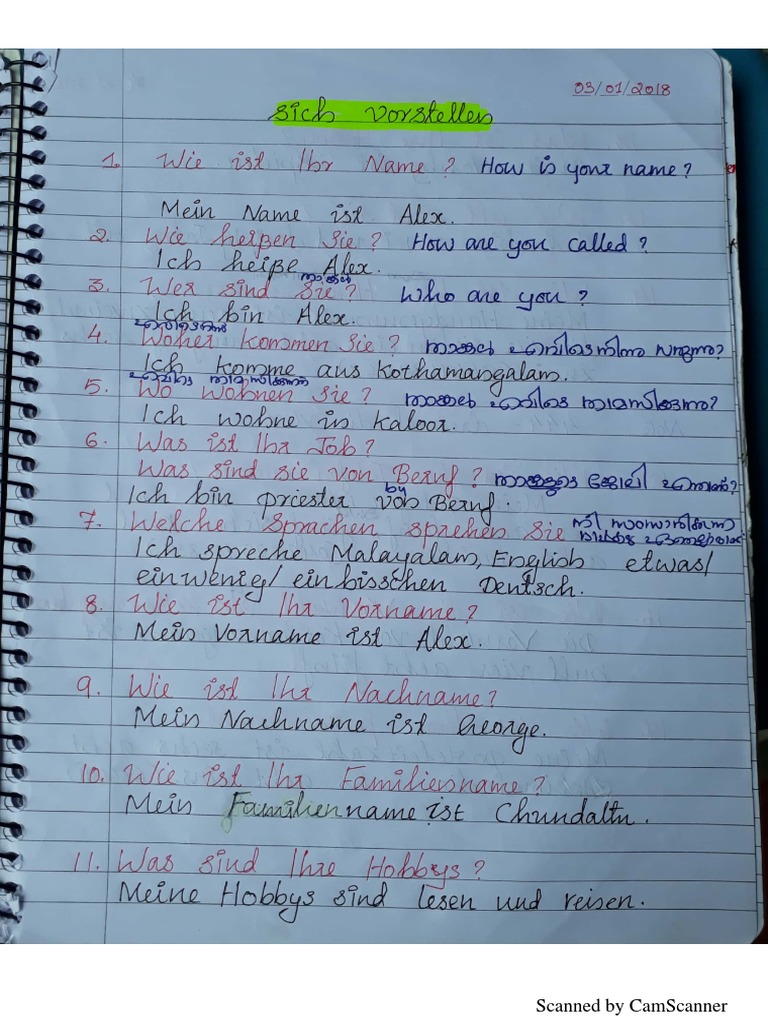 03/01/2018
sich vorstellen
1. Wie ist Ihr Name? How is your name?
Mein Name ist Alex.
2. Wie heißen Sie? How are you called?
Ich heiße Alex.
3. Wer sind Sie? Who are you?
Ich bin Alex.
4. Woher kommen Sie? താങ്കൾ എവിടെനിന്നു വരുന്നു?
Ich komme aus Kothamangalam.
എവിടെ താമസിക്കുന്നു
5. Wo wohnen Sie? താങ്കൾ എവിടെ താമസിക്കുന്നു?
Ich wohne in Kaloor.
6. Was ist Ihr Job?
Was sind sie von Beruf? താങ്കളുടെ ജോലി എന്താണ്?
by
Ich bin priester von Beruf.
7. Welche Sprachen sprehen Sie
Ich spreche Malayalam, English etwas/
einwenig/ einbisschen Deutsch.
8. Wie ist Ihr Vorname?
Mein Vorname ist Alex.
9. Wie ist Ihr Nachname?
Mein Nachname ist George.
10. Wie ist Ihr Familienname?
Mein Familienname ist
11. Was sind Ihre Hobbys?
Meine Hobbys sind lesen und reisen.
Scanned by CamScanner